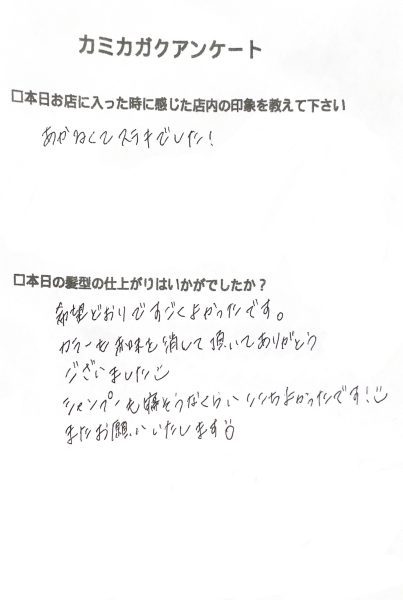 カミカガクアンケート
□本日お店に入った時に感じた店内の印象を教えて下さい
あかるくてステキでした！
□本日の髪型の仕上がりはいかがでしたか？
希望どおりですごくよかったです。
カラーも赤味を消して頂いてありがとう
ございました
シャンプーも寝そうなくらい ここちよかったです！
またお願いいたします